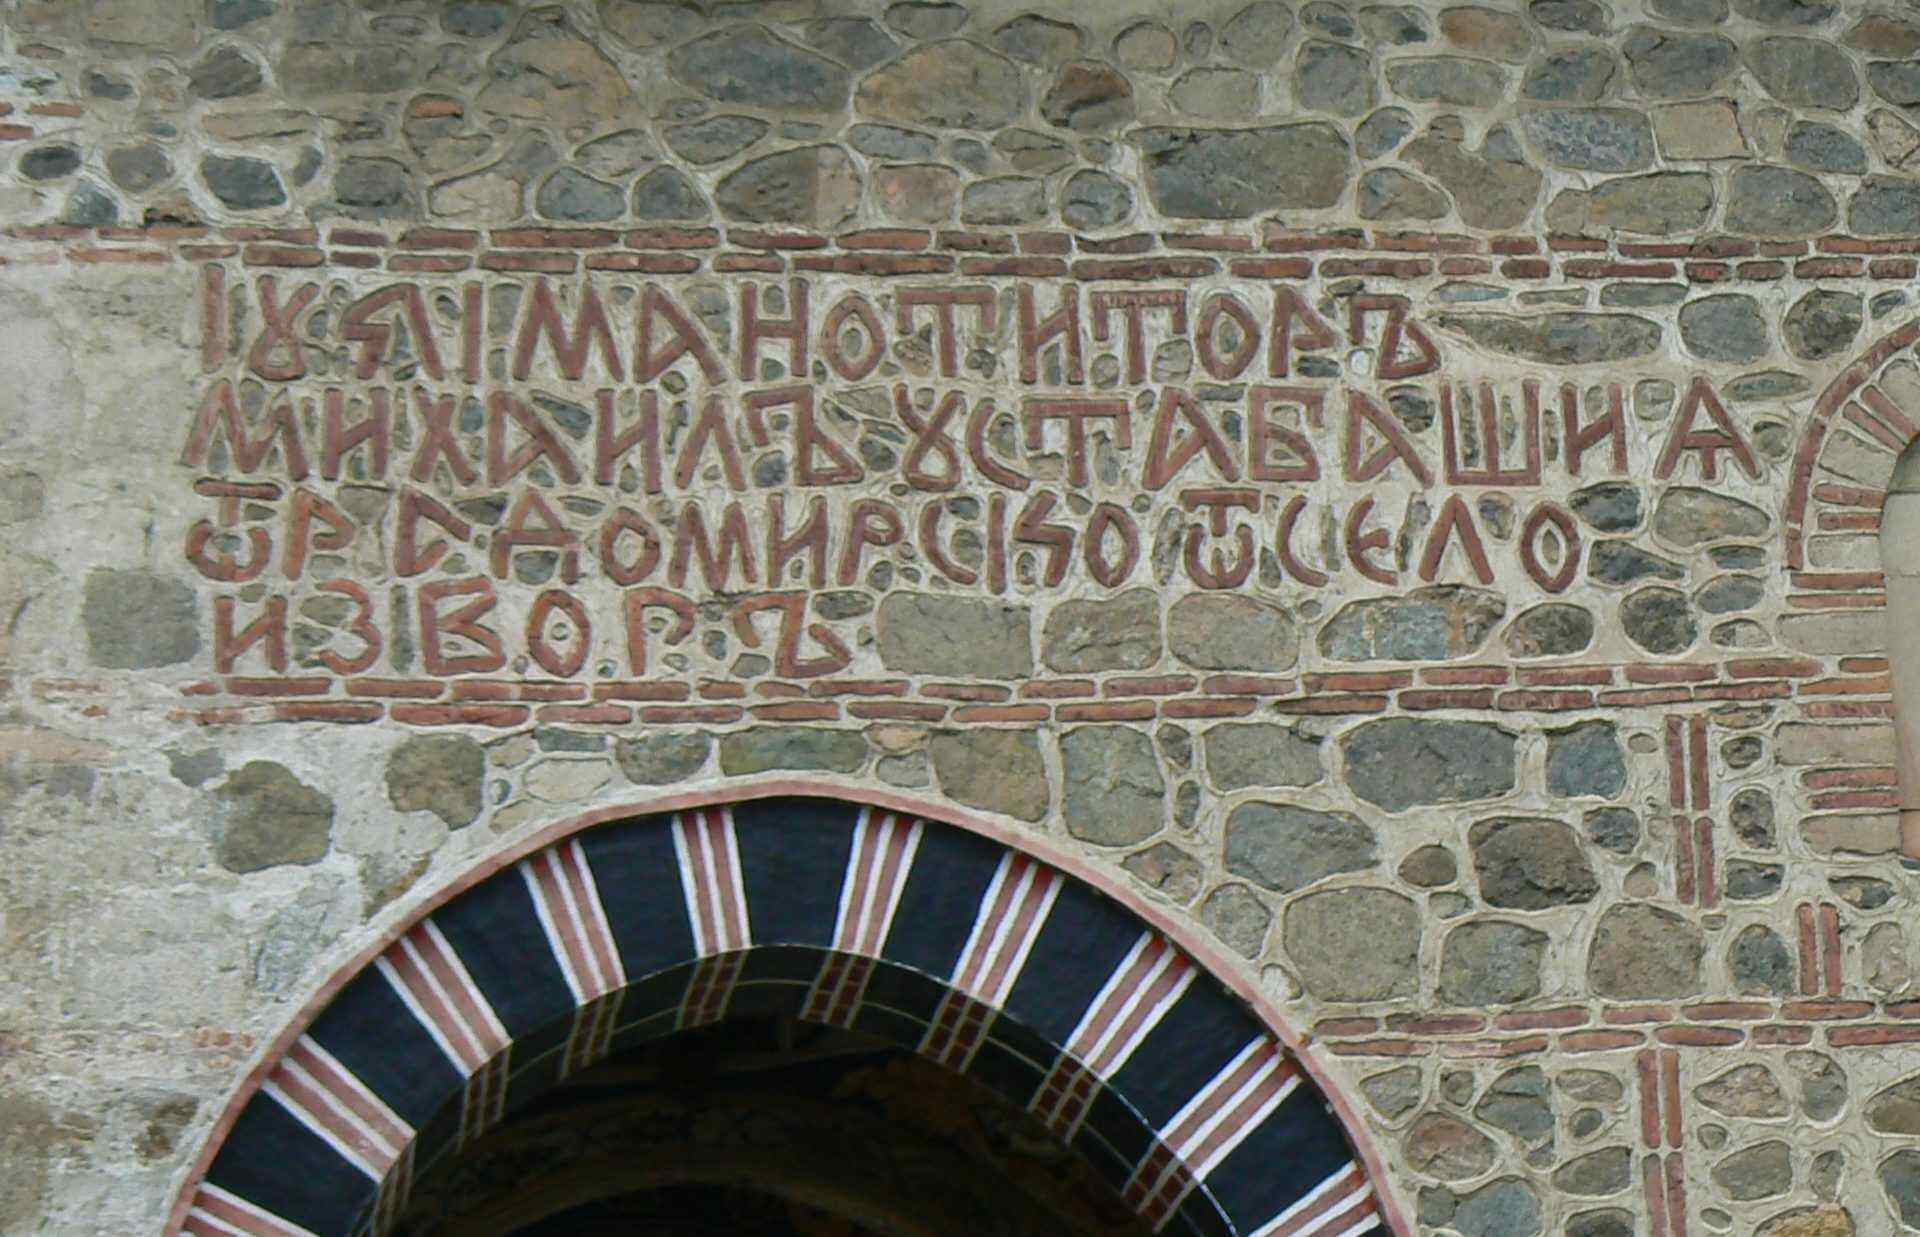 ІꙊЯІМАНОТИТОРЪ
МИХАИЛЪ ꙊСТАБАШИѦ
Ѿ РАДОМИРСКО Ѿ СЕЛО
ИЗВОРЪ